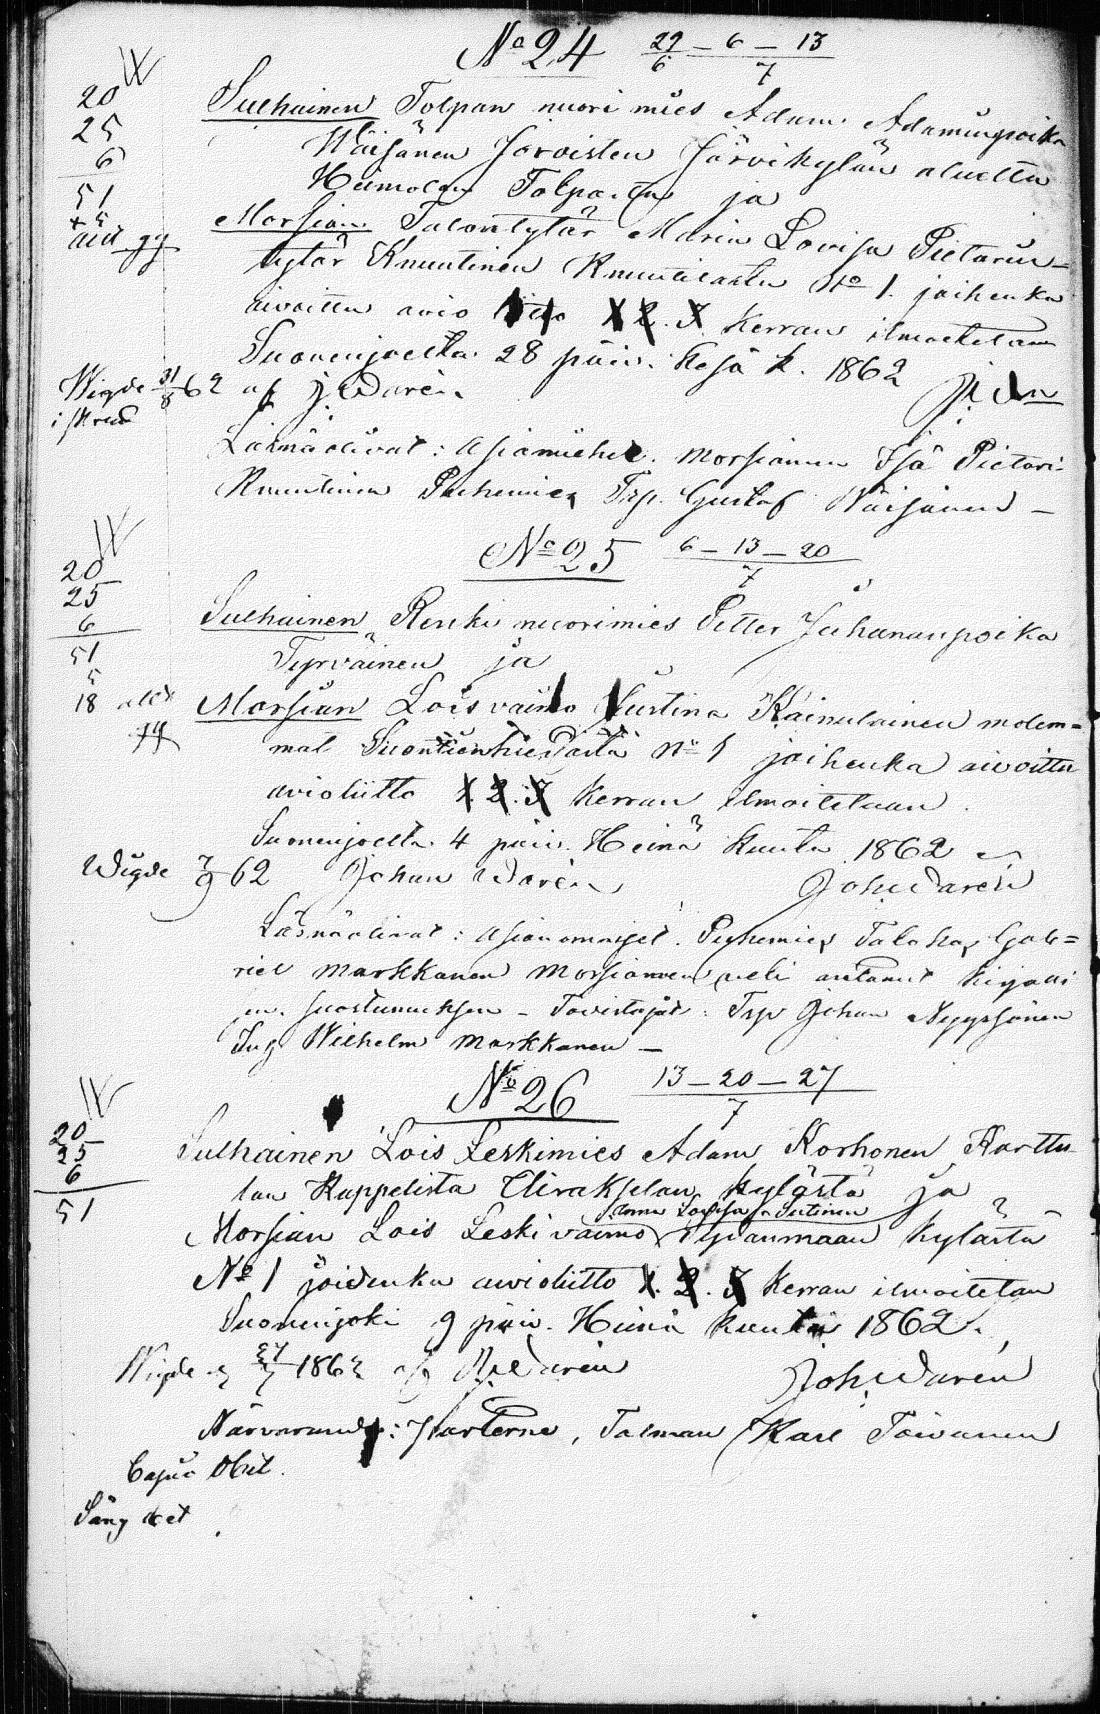 No 24 29/6 – 6 – 13/7
20
25
6
51
+ 5
Sulhainen Tolpan nuori mies Adam Adaminpoika
Wäisänen Joroisten Järvikylän aluetta
ja
Morsian Talontytär Maria Lovisa Pietarin-
tytär Knuutinen Knuutilasta No 1. joihenka
aivoittu avio liitto 1. 2. 3 Kerran ilmoitetaan
Suonenjoella 28 päiv. Kesä k. 1862
Wigde 31/8 62 af J. Warén
Läsnäolivat: Asiamiehet. Morsiamen Isä Pietari
Knuutinen Puhemies Trp. Gustaf Wäisänen –
No 25 6 – 13 – 20/7
20
25
6
51
5
18
Sulhainen Renki nuorimies Petter Juhananpoika
Tyrväinen ja
Morsian Loisvaimo Justina Kainulainen molem=
mat No 1 joihenka aivoittu
avioliitto 1. 2. 3 Kerran ilmoitetaan.
Suonenjoella 4 päiv. Heinä Kuuta 1862
Wigde 7/9 62 Johan Warén Joh Warén
Läsnäolivat: Asianomaiset. Puhemies Talokas Gab=
riel Markkanen Morsiamen veli antanut kirjalli
en suostumuksen – Todistajat: Trp Johan Nyyssönen
Ing Wilhelm Markkanen –
No 26 13 – 20 – 27/7
20
25
6
51
Sulhainen Lois Leskimies Adam Korhonen Karttu
lan Kappelista Airakselan kylästä ja
Anna Lovisa Jutinen
Morsian Lois Leski vaimo kylästä
No 1 joidenka avioliitto 1. 2. 3 Kerran ilmoitetan
Suonenjoki 9 päiv. Heinä kuuta 1862.
Wigde 27/7 1862 af J. Warén Joh Warén
Närvarande: Parterne, Talman Karl Toivanen